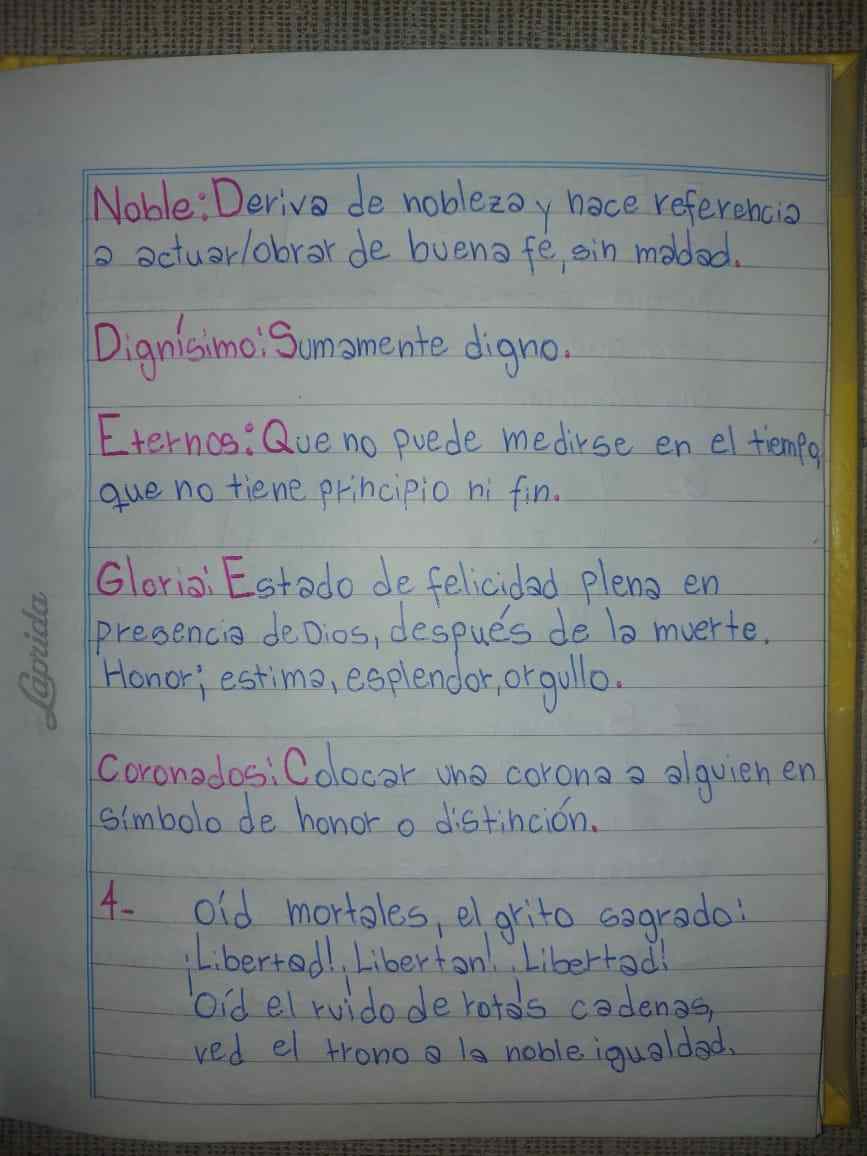 Noble: Deriva de nobleza y hace referencia
a actuar/obrar de buena fé, sin maldad.
Dignísimo: Sumamente digno.
Eternos: Que no puede medirse en el tiempo,
que no tiene principio ni fin.
Gloria: Estado de felicidad plena en
presencia de Dios, después de la muerte.
Honor; estima, esplendor, orgullo.
Coronados: Colocar una corona a alguien en
símbolo de honor o distinción.
4- Oíd mortales, el grito sagrado:
¡Libertad!, ¡Libertan!, ¡Libertad!
Oíd el ruido de rotas cadenas,
ved el trono a la noble igualdad.
Laprida